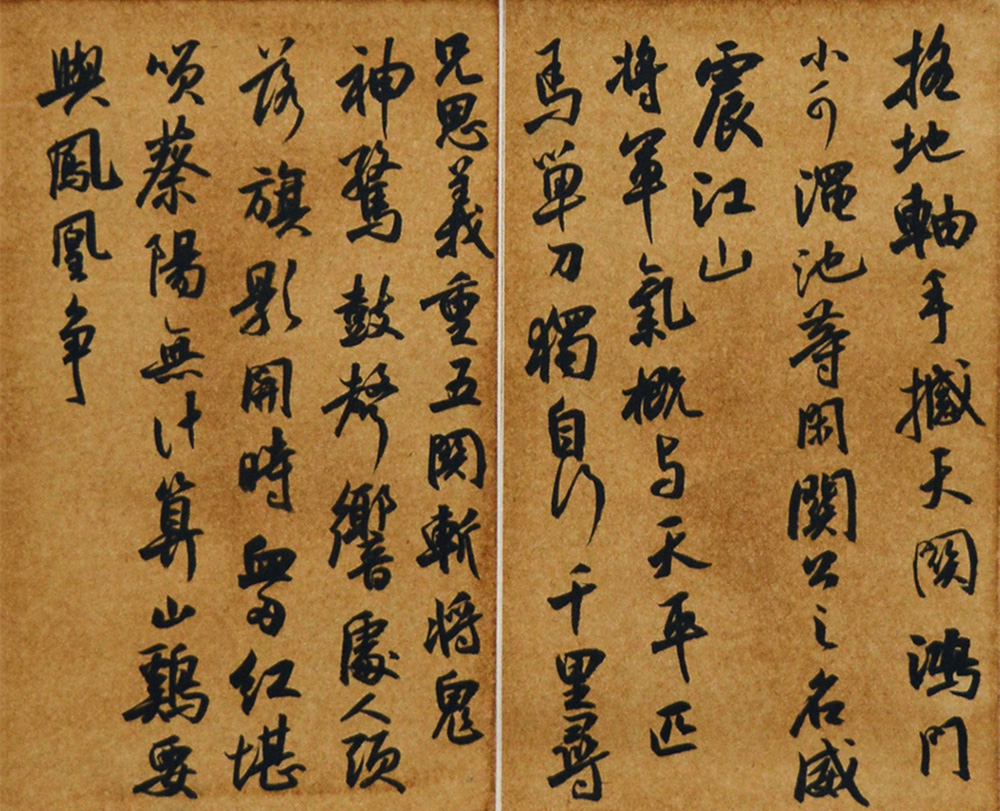 拖地軸手撼天關鴻門
小可澠池等閑關公之名威
震江山
將軍氣概与天平匹
馬單刀獨自行千里尋
兄恩義重五関斬將鬼
神驚鼓聲響處人頭
落旗影開時血雨紅堪
嘆蔡陽無計算山鷄要
與鳳凰争